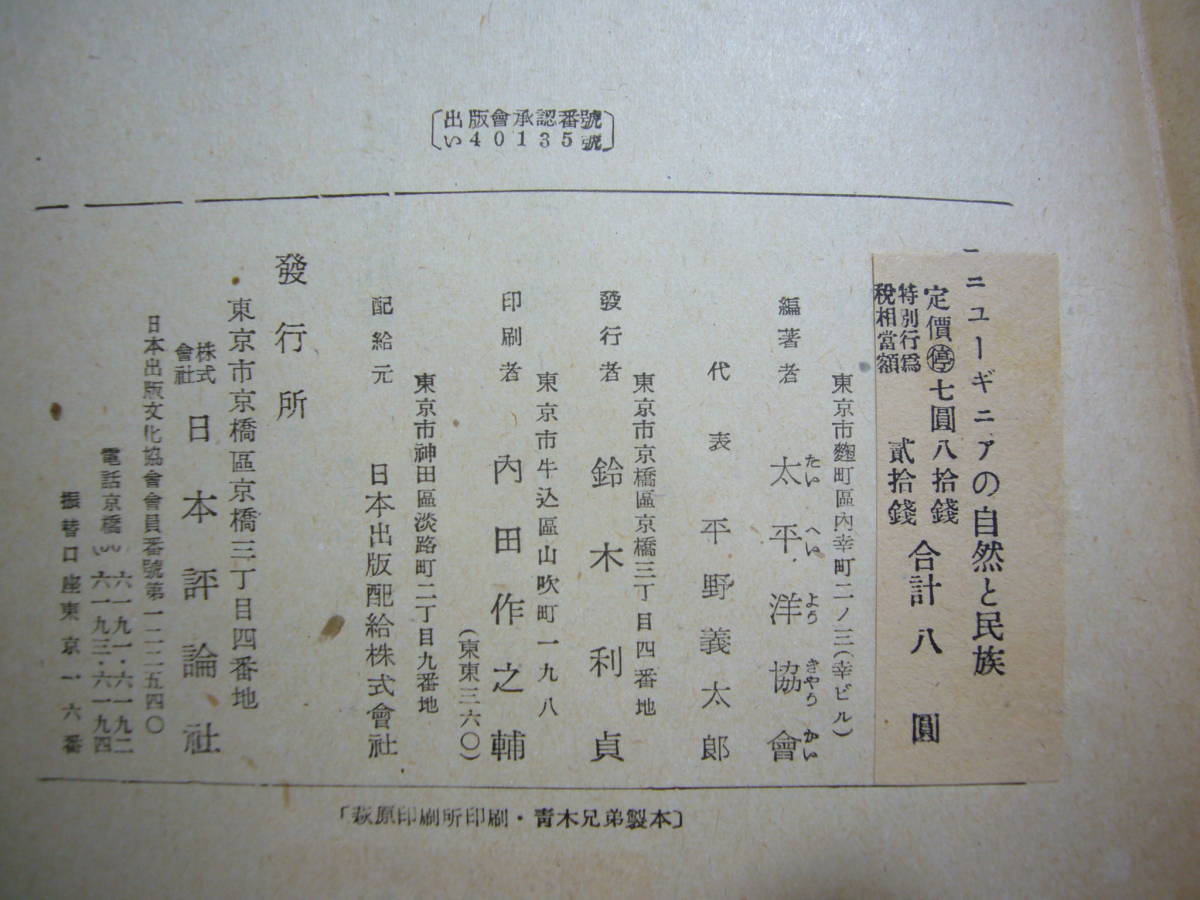 出版會承認番號
い40135號
ニユーギニアの自然と民族
定價㊡七圓八拾錢
特別行爲
稅相當額
貳拾錢
合計八圓
東京市麴町區內幸町二ノ三(幸ビル)
編著者 太平洋協會
たい へい よう きやう かい
代表 平野義太郎
東京市京橋區京橋三丁目四番地
發行者 鈴木利貞
東京市牛込區山吹町一九八
印刷者 內田作之輔
(東東三六〇)
東京市神田區淡路町二丁目九番地
配給元 日本出版配給株式會社
發行所
東京市京橋區京橋三丁目四番地
株式會社 日本評論社
日本出版文化協會會員番號第一二二五四〇
電話京橋(56)六一九一・六一九二
六一九三・六一九四
振替口座東京一六番
「萩原印刷所印刷・靑木兄弟製本〕